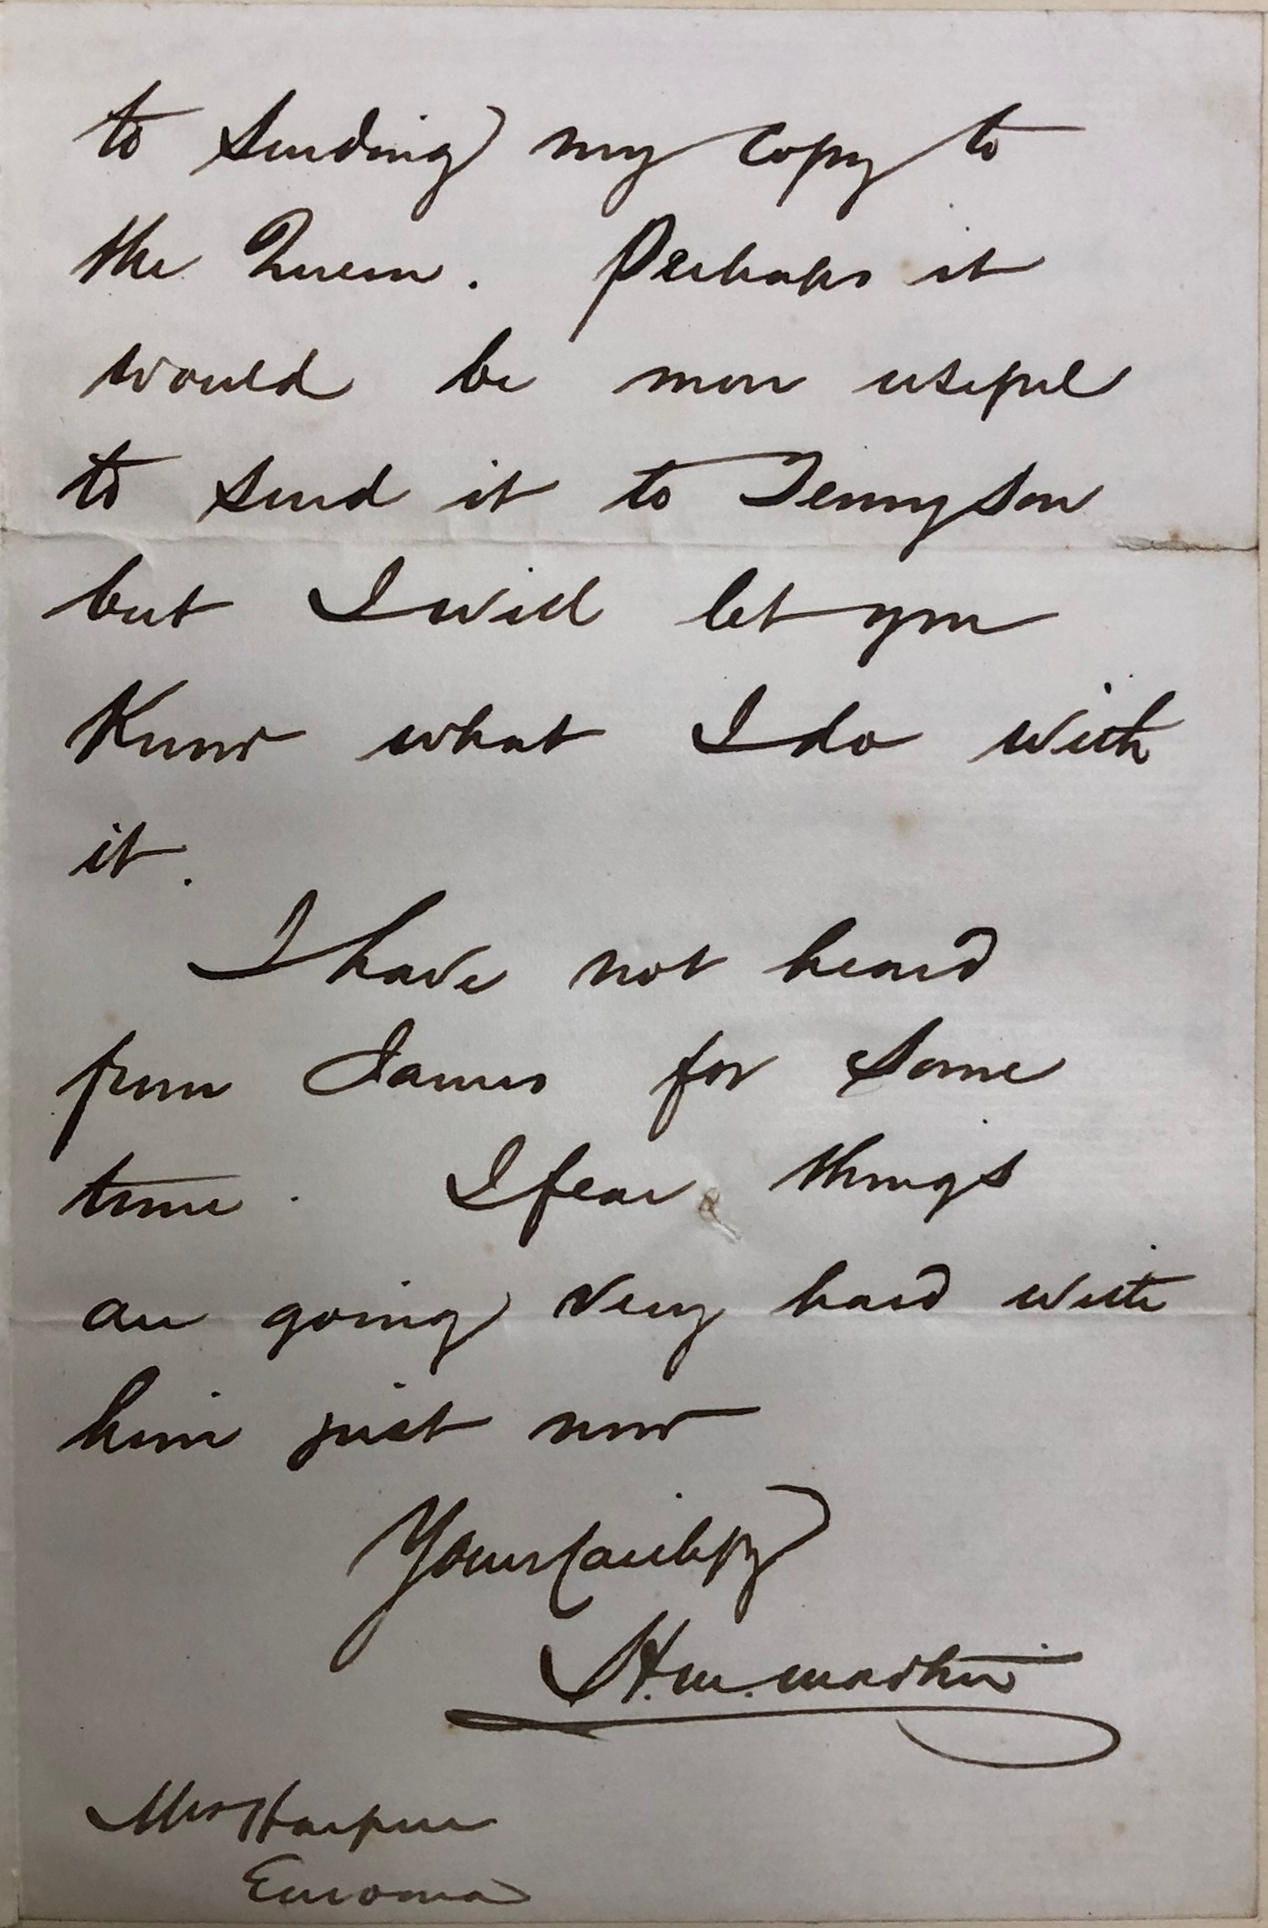 to sending my copy to
the Queen. Perhaps it
would be more useful
to send it to Tennyson
but I will let you
Know what I do with
it.
I have not heard
from James for some
time. I fear things
are going very hard with
him just now
Yours faithfly
H.M. Martin
Mrs Harpur
Euroma